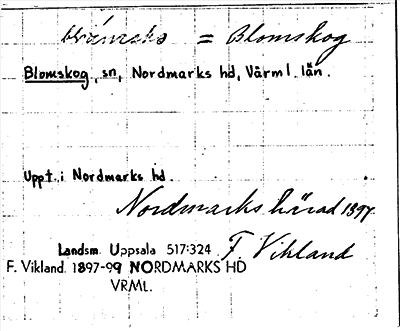 = Blomskog
Blomskog, sn, Nordmarks hd, Värml. län.
Uppt. i Nordmarks hd.
Nordmarks härad 1897.
Landsm. Uppsala 517:324
F. Vikland
F. Vikland. 1897-99 NORDMARKS HD
VRML.